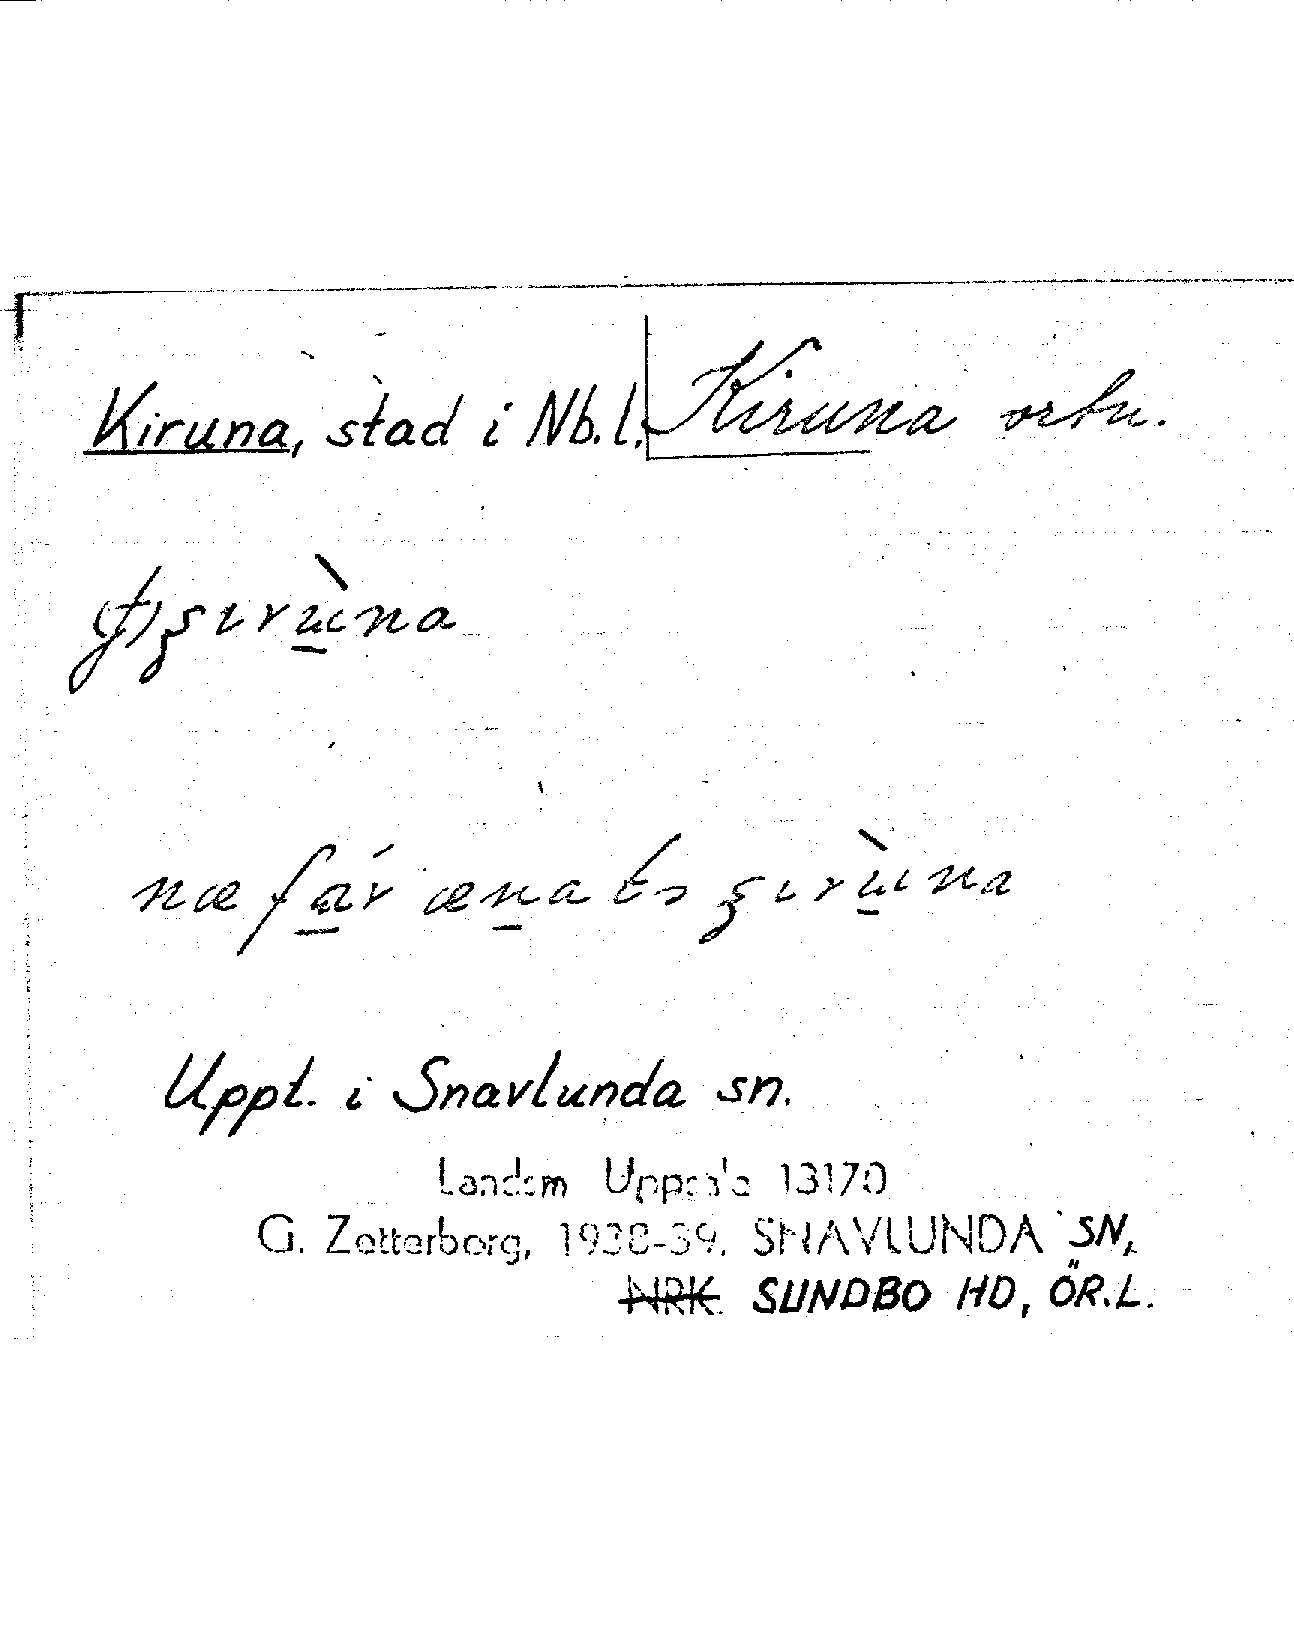 Kiruna, stad i Nb.l. Kiruna ortn.
Uppt. i Snavlunda sn.
Landsm Uppsala 13170
G. Zetterborg, 1938-39. SNAVLUNDA SN,
NRK SUNDBO HD, ÖR.L.